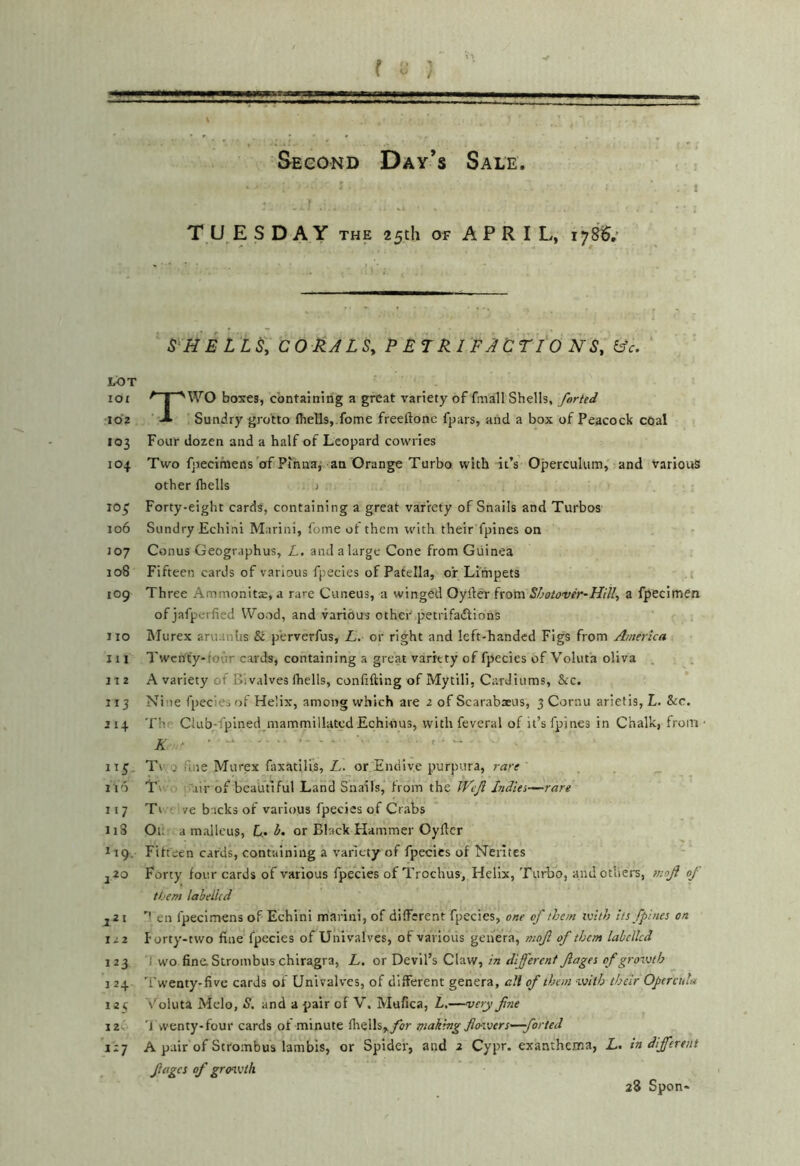 Second Day's Sale.
TUESDAY the 25th of APRIL, 1786.
SHELLS, CORALS, PETRIFACTIONS, &c.
LOT
101 TWO boxes, containing a great variety of ſmall Shells, ſorted
102 Sundry grotto ſhells, ſome freeſtone ſpars, and a box of Peacock coal
103 Four dozen and a half of Leopard cowries
104 Two ſpecimens of Pinna, an Orange Turbo with it's Operculum, and various
other ſhells
105 Forty-eight cards, containing a great variety of Snails and Turbos
106 Sundry Echini Marini, ſome of them with their ſpines on
107 Conus Geographus, L. and a large Cone from Guinea
108 Fifteen cards of various ſpecies of Patella, or Limpets
109 Three Ammonitæ, a rare Cuneus, a winged Oyſter from Shotover-Hill, a ſpecimen
of jaſperfied Wood, and various other petrifactions
110 Murex aruanus & perverſus, L. or right and left-handed Figs from America
111 Twenty-four cards, containing a great variety of ſpecies of Voluta oliva
112 A variety of Bivalves ſhells, conſiſting of Mytili, Cardiums, &c.
113 Nine ſpecies of Helix, among which are 2 of Scarabæus, 3 Cornu arietis, L. &c.
114 The Club-ſpined mammillated Echinus, with ſeveral of it's ſpines in Chalk, from
Kent
115 Two fine Murex ſaxatilis, L. or Endive purpura, rare
116 pair of beautiful Land Snails, from the Weſt Indies—rare
117 Twelve backs of various ſpecies of Crabs
118 a malleus, L. b. or Black Hammer Oyſter
119 Fifteen cards, containing a variety of ſpecies of Nerites
120 Forty four cards of various ſpecies of Trochus, Helix, Turbo, and others, moſt of
them labelled
121 Ten ſpecimens of Echini marini, of different ſpecies, one of them with its ſpines on
122 Forty-two fine ſpecies of Univalves, of various genera, moſt of them labelled
123 Two fine Strombus chiragra, L. or Devil's Claw, in different ſtages of growth
124 Twenty-five cards of Univalves, of different genera, all of them with their Opercula
125 Voluta Melo, S. and a pair of V. Muſica, L.—very fine
126 Twenty-four cards of minute ſhells, for making flowers—ſorted
127 A pair of Strombus lambis, or Spider, and 2 Cypr. exanthema, L. in different
ſtages of growth
28 Spon-